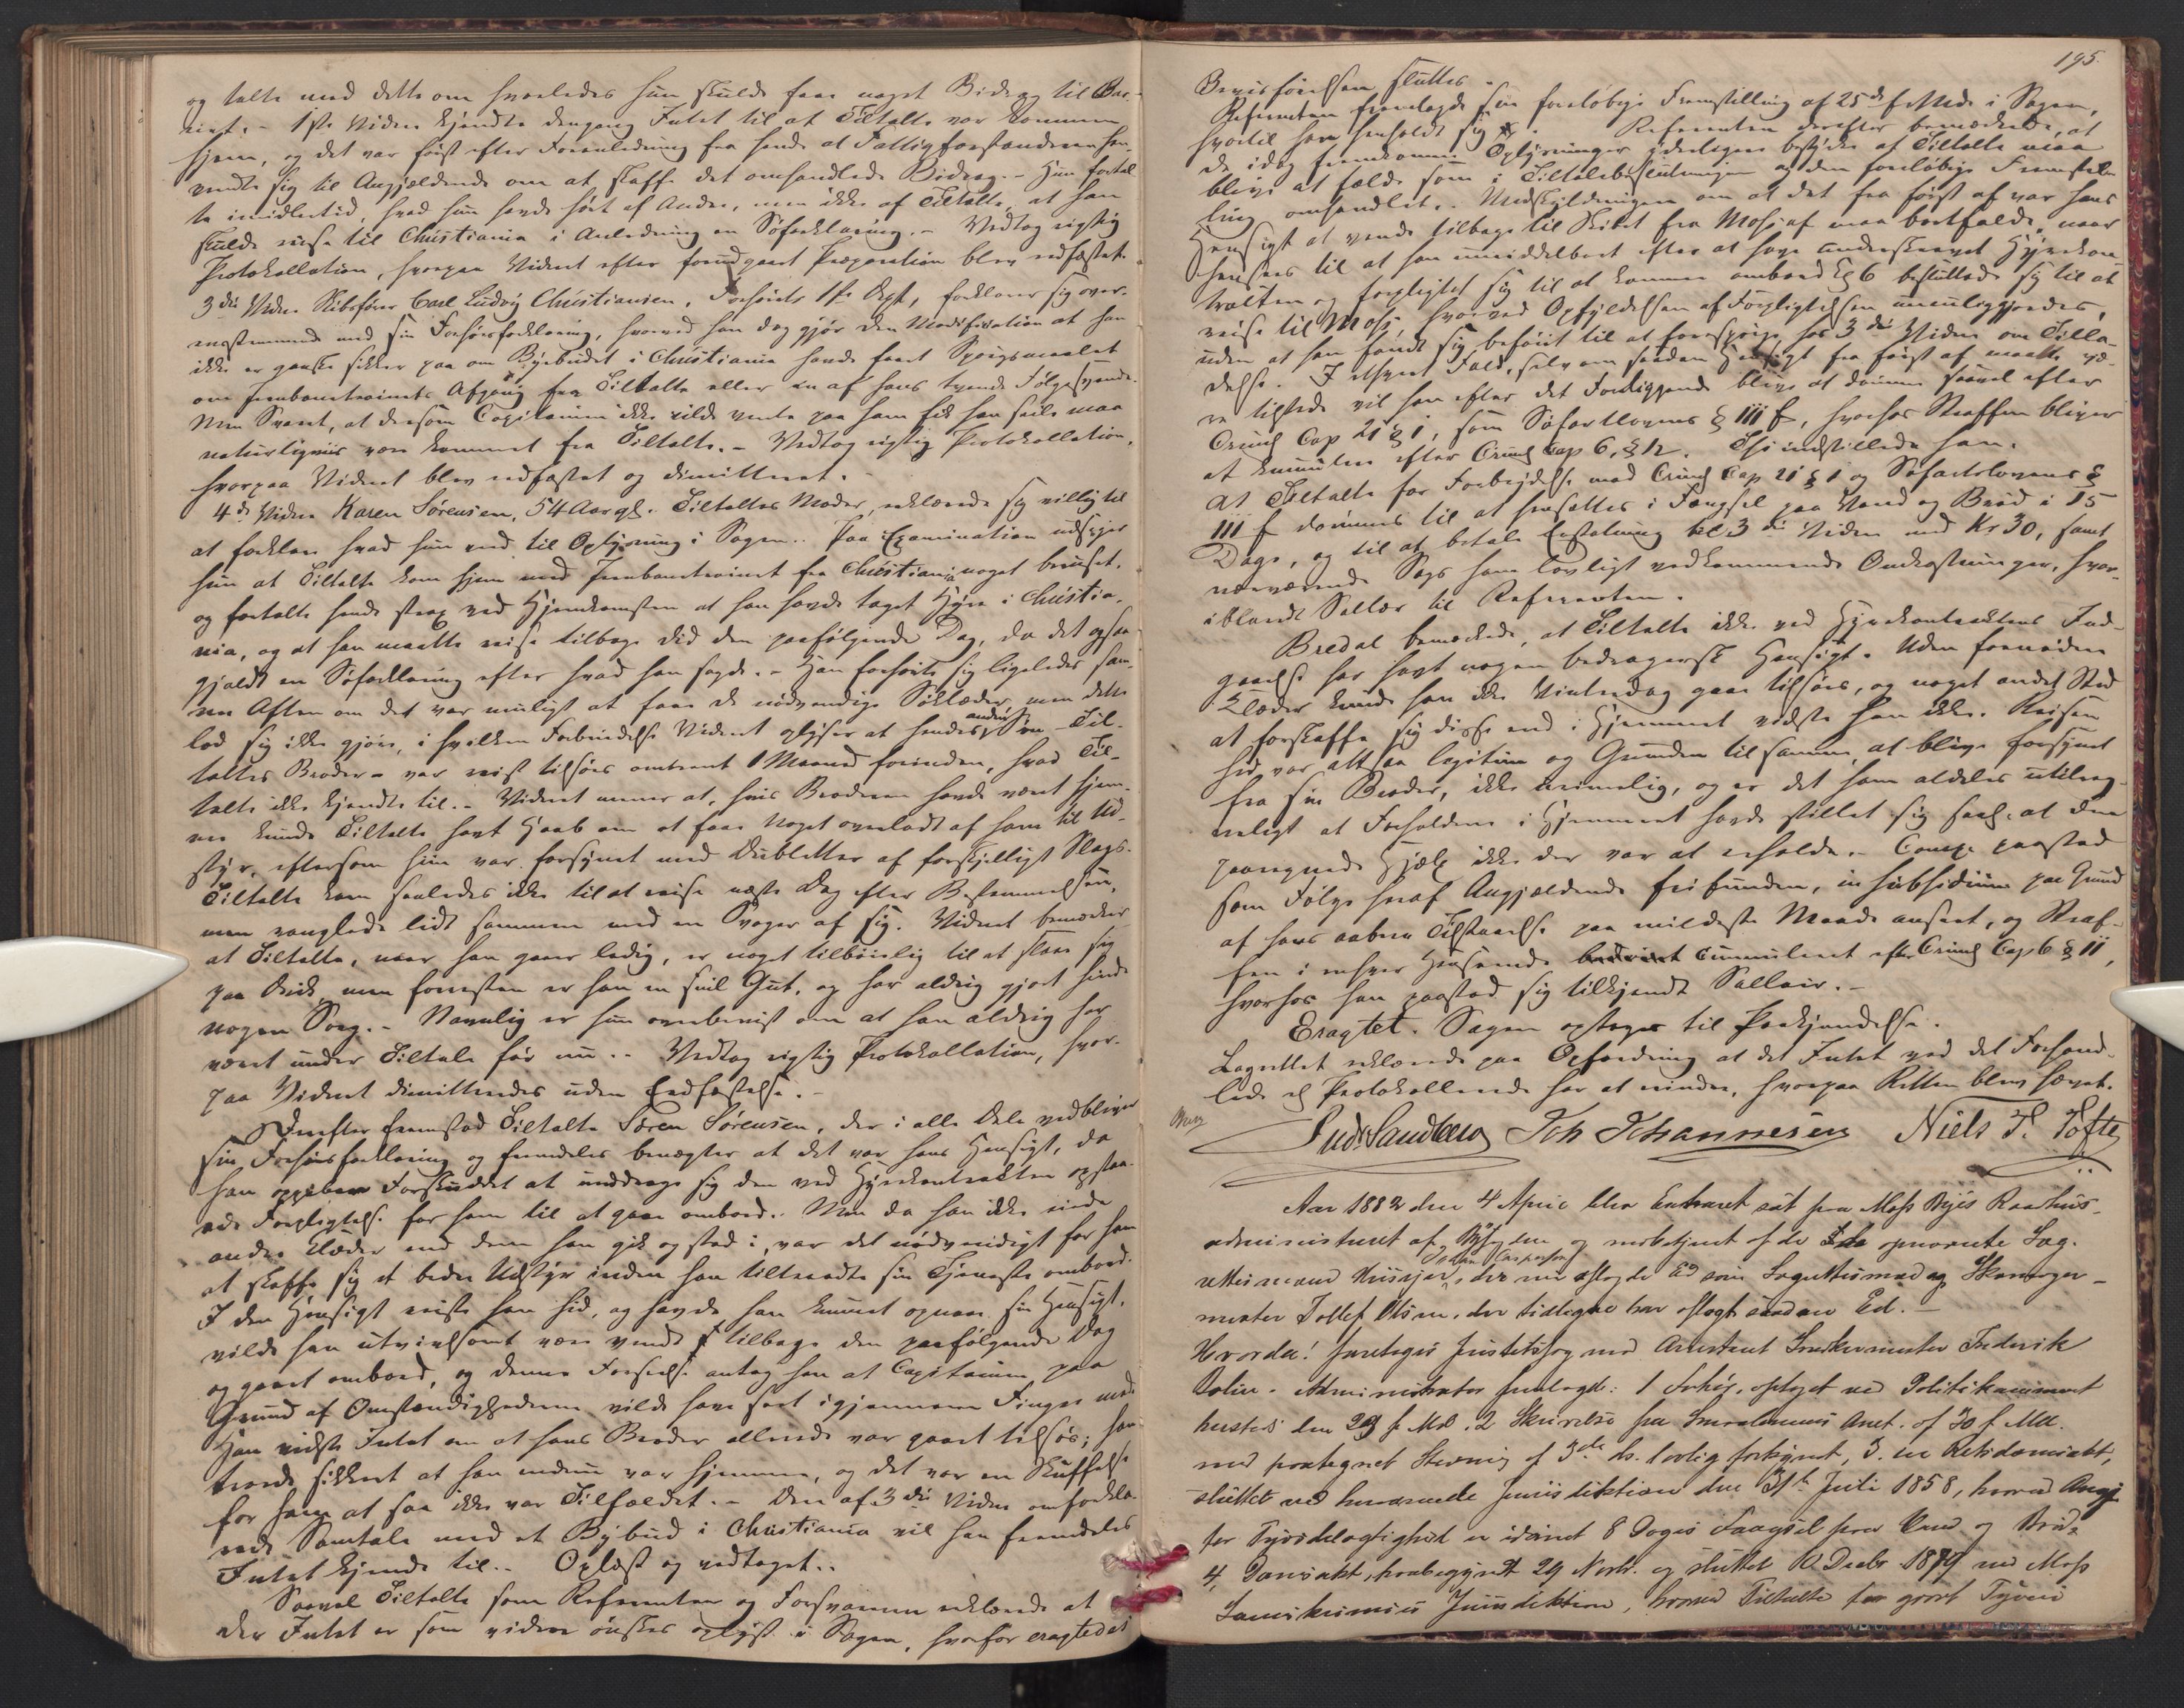 og talte med dette om hvorledes hun skulde faae noget Bidrag til Bar-
net. - 1ste Vidne kjendte dengang Intet til at Tiltalte var kommen
hjem, og det var først efter Foranledning fra hende at Fattigforstanderen hen-
vendte sig til Angjældende om at skaffe det omhandlede Bidrag. - Hun fortal-
te imidlertid, hvad hun havde hørt af Andre, men ikke af Tiltalte, at han
skulde reise til Christiania i Anledning en Søforklaring. - Vedtog rigtig
Protokollation, hvorpaa Vidnet efter forudgaaet Præparation blev edfæstet.
3die Vidne Skibsfører Carl Ludvig Christiansen, Forhørets 1ste Dept, forklarer sig over-
ensstemmende med sin Forhørsforklaring, hvorved han dog gjør den Modifikation at han
ikke er ganske sikker paa om Bybudet i Christiania havde faaet Spørgsmaalet
om Jernbanetrainets Afgang fra Tiltalte eller en af hans tvende Følgesvende.
Men Svaret, at dersom Capitainen ikke vilde vente paa ham fik han seile maa
naturligviis være kommet fra Tiltalte. - Vedtog rigtig Protokollation,
hvorpaa Vidnet blev edfæstet og dimitteret. -
4de Vidne Karen Sørensen, 54 Aar gl. Tiltaltes Moder, erklærede sig villig til
at forklare hvad hun veed til Oplysning i Sagen. - Paa Examination udsiger
hun at Tiltalte kom hjem med Jernbanetrainet fra Christiania noget beruset,
og fortalte hende strax ved Hjemkomsten at han havde taget Hyre i Christia-
nia, og at han maatte reise tilbage did den paafølgende Dag, da det ogsaa
gjaldt en Søforklaring efter hvad han sagde. - Han forhørte sig ligeledes sam-
me Aften om det var muligt at faae de nødvendige Søklæder, men dette
lod sig ikke gjøre, i hvilken Forbindelse Vidnet oplyser at hendes anden Søn - Til-
taltes Broder - var reist tilsøes omtrent 1 Maaned forinden, hvad Til-
talte ikke kjendte til. - Vidnet mener at, hvis Broderen havde været hjem-
me kunde Tiltalte havt Haab om at faae Noget overladt af ham til Ud-
styr, eftersom hiin var forsynet med Dubletter af forskjelligt Slags.
Tiltalte kom saaledes ikke til at reise næste Dag efter Bestemmelsen,
men ranglede lidt sammen med en Svoger af sig. Vidnet bemærker
at Tiltalte, naar han gaaer ledig, er noget tilbøielig til at slaae sig
paa Drik, men forresten er han en snil Gut, og har aldrig gjort hende
nogen Sorg. - Navnlig er hun overbeviist om at han aldrig har
været under Tiltale før nu. - Vedtog rigtig Protokollation, hvor-
paa Vidnet dimitteredes uden Edfæstelse. -
Derefter fremstod Tiltalte Søren Sørensen, der i alle Dele vedbliver
sin Forhørsforklaring og fremdeles benægter at det var hans Hensigt, da
han oppebar Forskuddet at unddrage sig den ved Hyrekontrakten opstaa-
ede Forpligtelse for ham til at gaae ombord. Men da han ikke eiede
andre Klæder end dem han gik og stod i, var det nødvendigt for ham
at skaffe sig et bedre Udstyr inden han tiltraadte sin Tjeneste ombord.
I den Hensigt reiste han hid, og havde han kunnet opnaae sin Hensigt,
vilde han utvivlsomt være vendt tilbage den paafølgende Dag
og gaaet ombord, og denne Forseelse antog han at Capitainen paa
Grund af Omstændighederne vilde have seet igjennem Fingre med.
Han vidste Intet om at hans Broder allerede var gaaet tilsøs; han
troede sikkert at han endnu var hjemme, og det var en Skuffelse
for ham at saa ikke var Tilfældet. - Den af 3die Vidne omforkla-
rede Samtale med et Bybud i Christiania vil han fremdeles
Intet kjende til. - Oplæst og vedtaget. -
Saavel Tiltalte som Referenten og Forsvareren erklærede at
der Intet er som videre ønskes oplyst i Sagen, hvorfor eragtedes
195.
Bevisførelsen sluttet. -
Referenten fremlagde sin foreløbige Fremstilling af 25de f. Md. i Sagen,
hvortil han henholdt sig. Referenten derefter bemærkede, at
de idag fremkomne Oplysninger yderligere bestyrke at Tiltalte maa
blive at fælde som i Tiltalebeslutningen og den foreløbige Fremstil-
ling omhandlet. Undskyldningen om at det fra først af var hans
Hensigt at vende tilbage til Skibet fra Moss maa bortfalde, naar
henses til at han umiddelbart efter at have underskrevet Hyrekon-
trakten og forpligtet sig til at komme ombord Kl 6 besluttede sig til at
reise til Moss, hvorved Opfyldelsen af Forpligtelsen umuliggjordes,
uden at han fandt sig beføiet til at forespørge hos 3die Vidne om Tilla-
delse. I ethvert Fald, selv om saadan Hensigt fra først af maatte væ-
re tilstede vil han efter det Foreliggende blive at dømme saavel efter
Criml Cap 21 § 1, som Søfartlovens § 111 f, hvorhos Straffen bliver
at kumulere efter Criml Cap 6, § 12. Thi indstillede han:
At Tiltalte for Forbrydelse mod Criml Cap 21 § 1 og Søfartslovens §
111 f dømmes til at hensættes i Fængsel paa Vand og Brød i 15
Dage, og til at betale Erstatning til 3die Vidne med Kr 30, samt
nærværende Sags ham lovligt vedkommende Omkostninger, hvor-
iblandt Sallær til Referenten.
Bredal bemærkede, at Tiltalte ikke ved Hyrekontraktens Ind-
gaaelse har havt nogen bedragersk Hensigt. Uden fornødne
Klæder kunde han ikke Vintersdag gaae tilsøes, og noget andet Sted
at forskaffe sig disse end i Hjemmet vidste han ikke. Reisen
hid var altsaa legitim og Grunden til samme, at blive forsynet
fra sin Broder, ikke urimelig, og er det ham aldeles utilreg-
neligt at Forholdene i Hjemmet havde stillet sig saal. at den
paaregnede Hjælp ikke der var at erholde. - Comp. paastod
som Følge heraf Angjældende frifunden, in subsidium paa Grund
af hans aabne Tilstaaelse paa mildeste Maade anseet, og Straf-
fen i enhver Henseende cumuleret efter Criml Cap 6 § 11,
hvorhos han paastod sig tilkjendt Sallair. -
Eragtet. Sagen optages til Paakjendelse.
Lagrettet erklærede paa Opfordring at det Intet ved det Forhand-
lede og Protokollerede har at erindre, hvorpaa Retten blev hævet.
Andr Sandberg Joh Johannesen Niels P. Tofte
Aar 1882 den 4 April blev Extraret sat paa Moss Byes Raadhus
administreret af Byfogden og medbetjent af de opnævnte Lag-
Johan Caspersen
rettesmænd Huusjer, der nu aflagde Ed som Lagrettesmand og Skomager-
mester Tollef Olsen, der tidligere har aflagt saadan Ed. -
Hvorda! foretoges Justitssag mod Arrestant Snedkermester Frederik
Bolin. Administrator fremlagde: 1 Forhør, optaget ved Politikammeret
hersteds den 29 f. Md. 2 Skrivelse fra Smaalenenes Amt af 30 f. Md.
med paategnet Stevning af 3de ds. lovlig forkyndt, 3. en Retsdomsakt,
sluttet ved herværende Jurisdiktion den 31te Juli 1858, hvorved Angj.
for Tyvsdelagtighed er idømt 8 Dages Fængsel paa Vand og Brød,
4, Domsakt, paabegyndt 29 Novbr. og sluttet 10 Decbr. 1879 ved Moss
Sorenskriveris Jurisdiktion, hvorved Tiltalte for grovt Tyveri